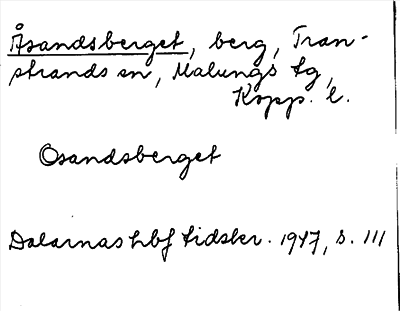 Åsandsberget, berg, Tran-
strands sn, Malungs tg,
Kopp. l.
Osandsberget
Dalarnas hbf tidskr. 1947, s. 111